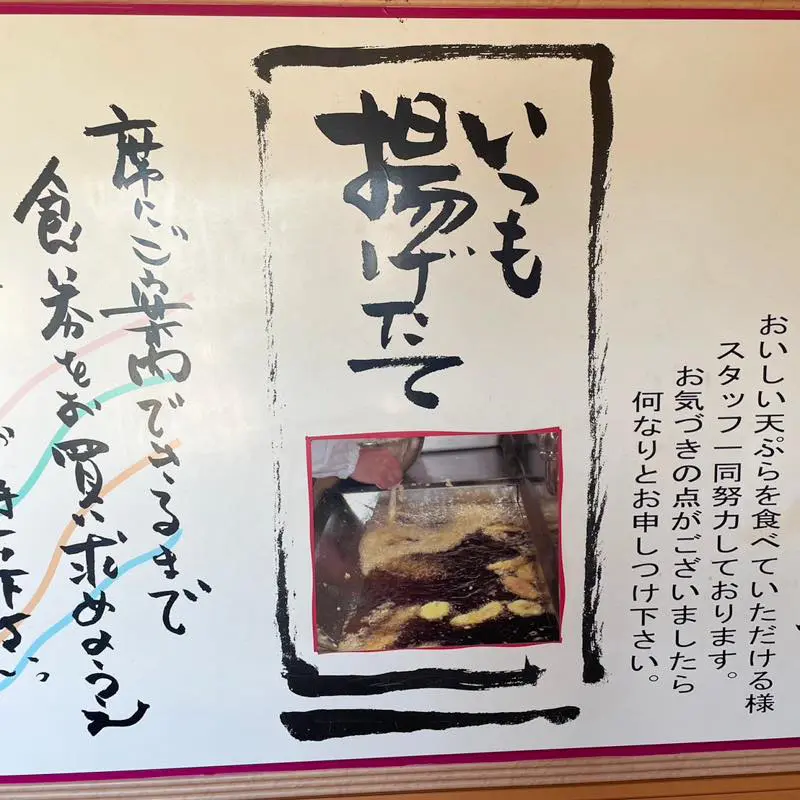 おいしい天ぷらを食べていただける様
スタッフ一同努力しております。
お気づきの点がございましたら
何なりとお申しつけ下さい。
いつも
揚げたて
席にご案内できるまで
食券をお買い求めのうえ
お待ち下さい。